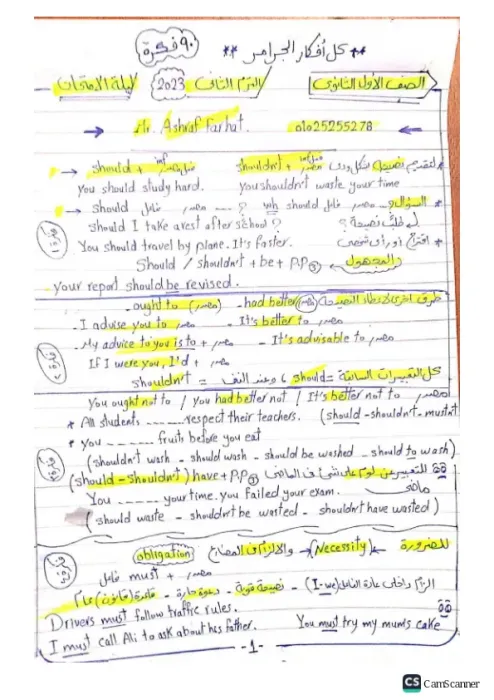 ** كل أفكار الجرامر ** ٩٠ فكرة
الصف الأول الثانوي الترم الثاني 2023 ليلة الامتحان
→ Mr. Ashraf Farhat. 01025255278 ←
→ should + inf مصدر shouldn't + inf مصدر لتقديم نصيحة بشكل ودى
You should study hard. you shouldn't waste your time
→ should فاعل مصدر ---- ? wh should فاعل مصدر ---- السؤال *
Should I take a rest after school? لـ طلب نصيحة؟
You should travel by plane. It's faster.
Should / shouldn't + be + p.p③ المجهول
your report should be revised.
ought to (مصدر) - had better (مصدر)
- I advise you to مصدر - It's better to مصدر
- My advice to you is to + مصدر - It's advisable to مصدر
If I were you, I'd + مصدر
كل التعبيرات السابقة = should ، وعند النفى = shouldn't
You ought not to / you had better not / It's better not to مصدر
* All students ------ respect their teachers. (should - shouldn't - mustn't
* you ------ fruits before you eat
(shouldn't wash - should wash - should be washed - should to wash)
(should - shouldn't) have + p.p③ للتعبير عن لوم على شئ فى الماضى
You ------ your time. you failed your exam.
(should waste - shouldn't be wasted - shouldn't have wasted)
للضرورة ← (Necessity) ← والالزام فى المضارع (obligation)
فاعل must + مصدر
الزام داخلى عادة الفاعل (I-we) - نصيحة قوية - دعوة حارة - قاعدة (قانون) عام
Drivers must follow traffic rules.
I must call Ali to ask about his father. You must try my mum's cake
-1-
CS CamScanner